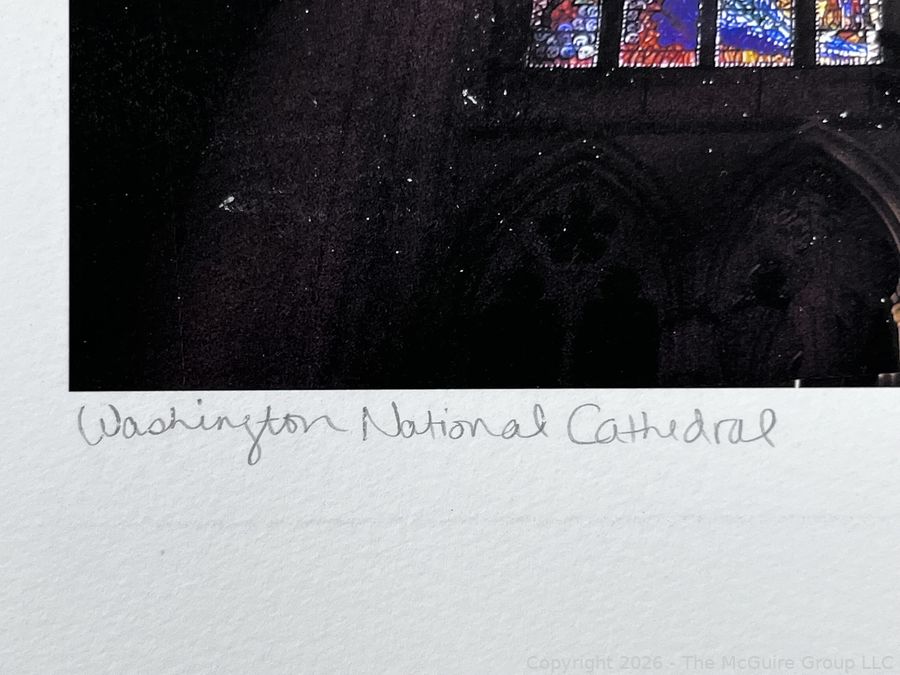 Washington National Cathedral
Copyright 2026 - The McGuire Group LLC